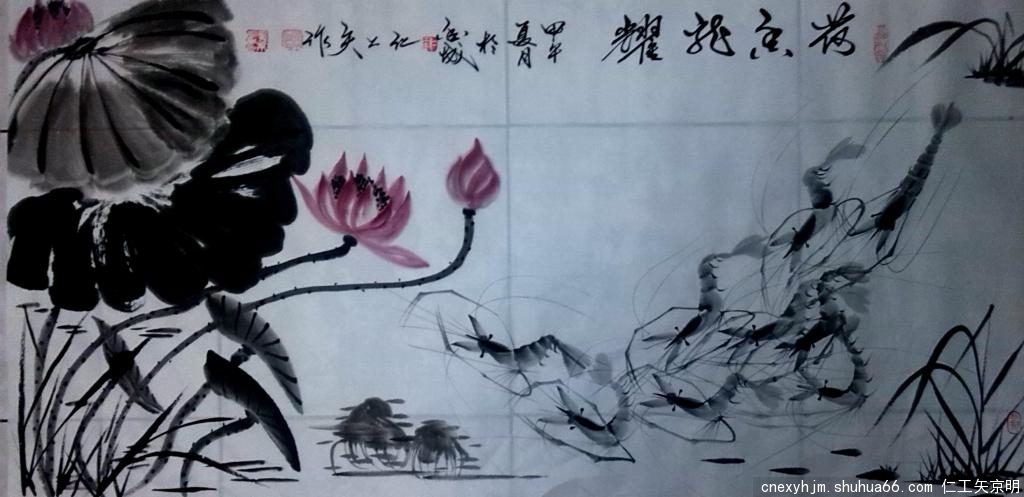 荷香龙耀
甲午
夏月
於
仁工矢作
cnexyhjm.shuhua66.com 仁工矢京明